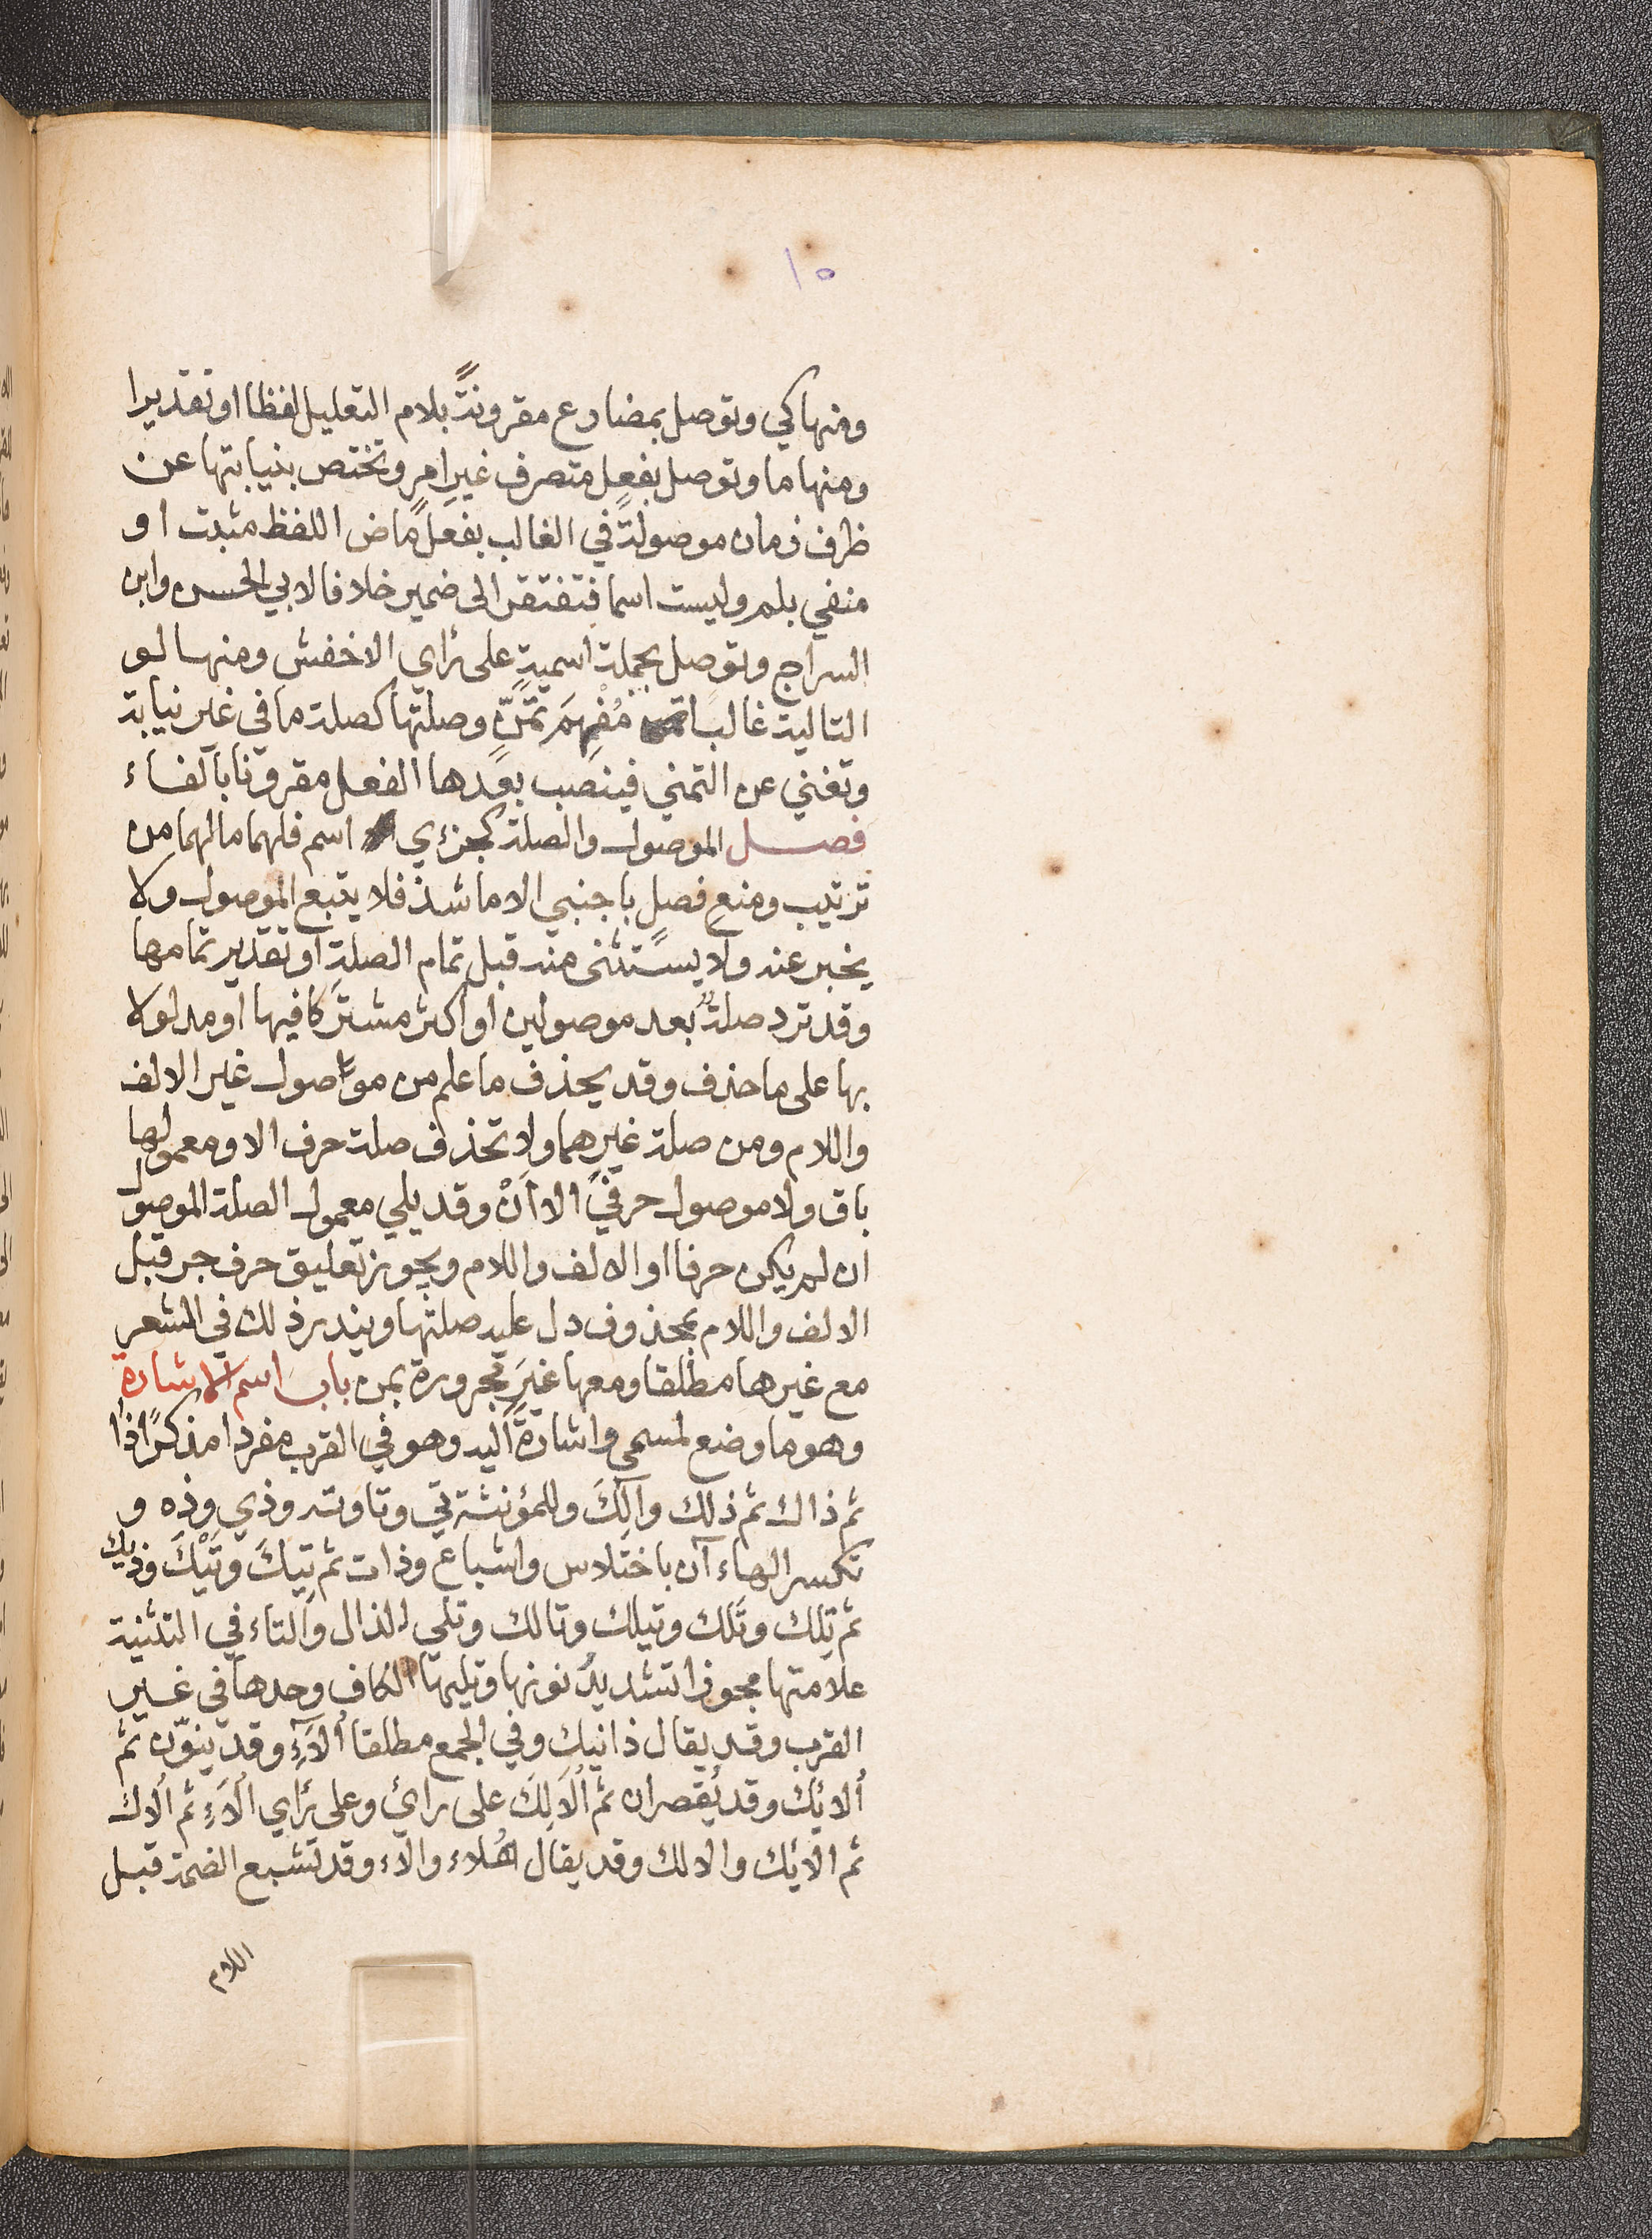 ١٥
ومنها كي وتوصل بمضارع مقرونةً بلام التعليل لفظا او تقديرا
ومنها ما وتوصل بفعلٍ متصرف غيرِ امرٍ وتختص بنيابتها عن
ظرف زمان موصولةً في الغالب بفعلٍ ماض اللفظ مثبت او
منفي بلم وليست اسما فتفتقر الى ضمير خلافا لابي الحسن وابن
السراج وتوصل بجملة اسمية على رأي الاخفش ومنها لو
التالية غالبا مُفْهِمَ تمَنٍّ وصلتها كصلة ما في غير نيابة
وتغني عن التمني فينصب بعدها الفعل مقرونا بالفاء
فصل الموصول والصلة كجزءي اسم فلهما ما لهما من
ترتيب ومنع فصلٍ باجنبي الا ما شذ فلا يتبع الموصول ولا
يخبر عنه ولا يستثنى منه قبل تمام الصلة او تقدير تمامها
وقد ترد صلةٌ بعد موصولين او اكثر مشتركا فيها او مدلولا
بها على ما حذف وقد يحذف ما علم من موصول غير الالف
واللام ومن صلة غيرهما ولا تحذف صلة حرف الا ومعمولها
باق ولا موصول حرفيٌ الا أنْ وقد يلي معمول الصلة الموصول
ان لم يكن حرفا او الالف واللام ويجوز تعليق حرف جر قبل
الالف واللام بمحذوف دل عليه صلتها ويندر ذلك في الشعر
مع غيرها مطلقا ومعها غيرَ مجرورة بمن باب اسم الاشارة
وهو ما وضع لمسمى واشارةً اليه وهو في القرب مفردا مذكرًا ذا
ثم ذاك ثم ذلك وآلِكَ وللمؤنثة تي وتا وته وذي وذه و
تكسر الهاءآن باختلاس واشباع وذات ثم تِيكَ وتَيْكَ وذيك
ثم تِلك وتَلك وتيلك وتالك وتلي الذال والتاء في التثنية
علامتها مجوزا تشديدُ نونها وتليها الكاف وحدها في غير
القرب وقد يقال ذانيك وفي الجمع مطلقا أُلاَءِ وقد ينوّن ثم
أُلائك وقد يُقصران ثم أُلاَلِكَ على رأي وعلى رأي أُلاَءِ ثم أُلاك
ثم الائك والالك وقد يقال هُلاء والاء وقد تشبع الضمة قبل
اللام